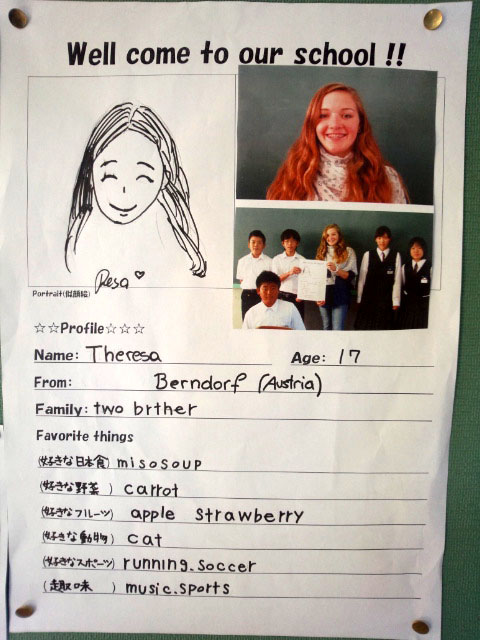 Well come to our school !!
Resa ♡
Portrait(似顔絵)
☆☆Profile☆☆☆
Name: Theresa Age: 17
From: Berndorf (Austria)
Family: two brther
Favorite things
(好きな日本食) misosoup
(好きな野菜 ) carrot
(好きなフルーツ) apple strawberry
(好きな動物 ) cat
(好きなスポーツ) running.soccer
( 趣味 ) music.sports